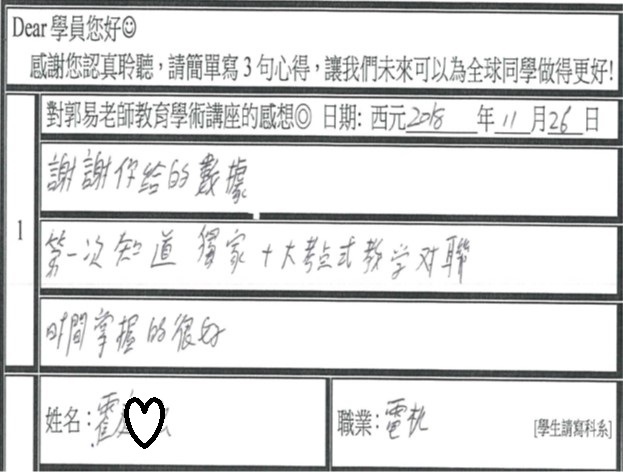 Dear 學員您好☺
感謝您認真聆聽，請簡單寫 3 句心得，讓我們未來可以為全球同學做得更好!
對郭易老師教育學術講座的感想◎ 日期: 西元2018 年 11 月 26 日
1
謝謝你给的數據
第一次知道 獨家 十大考点式教学对聯
时間掌握的很好
姓名：霍
職業：電机 [學生請寫科系]